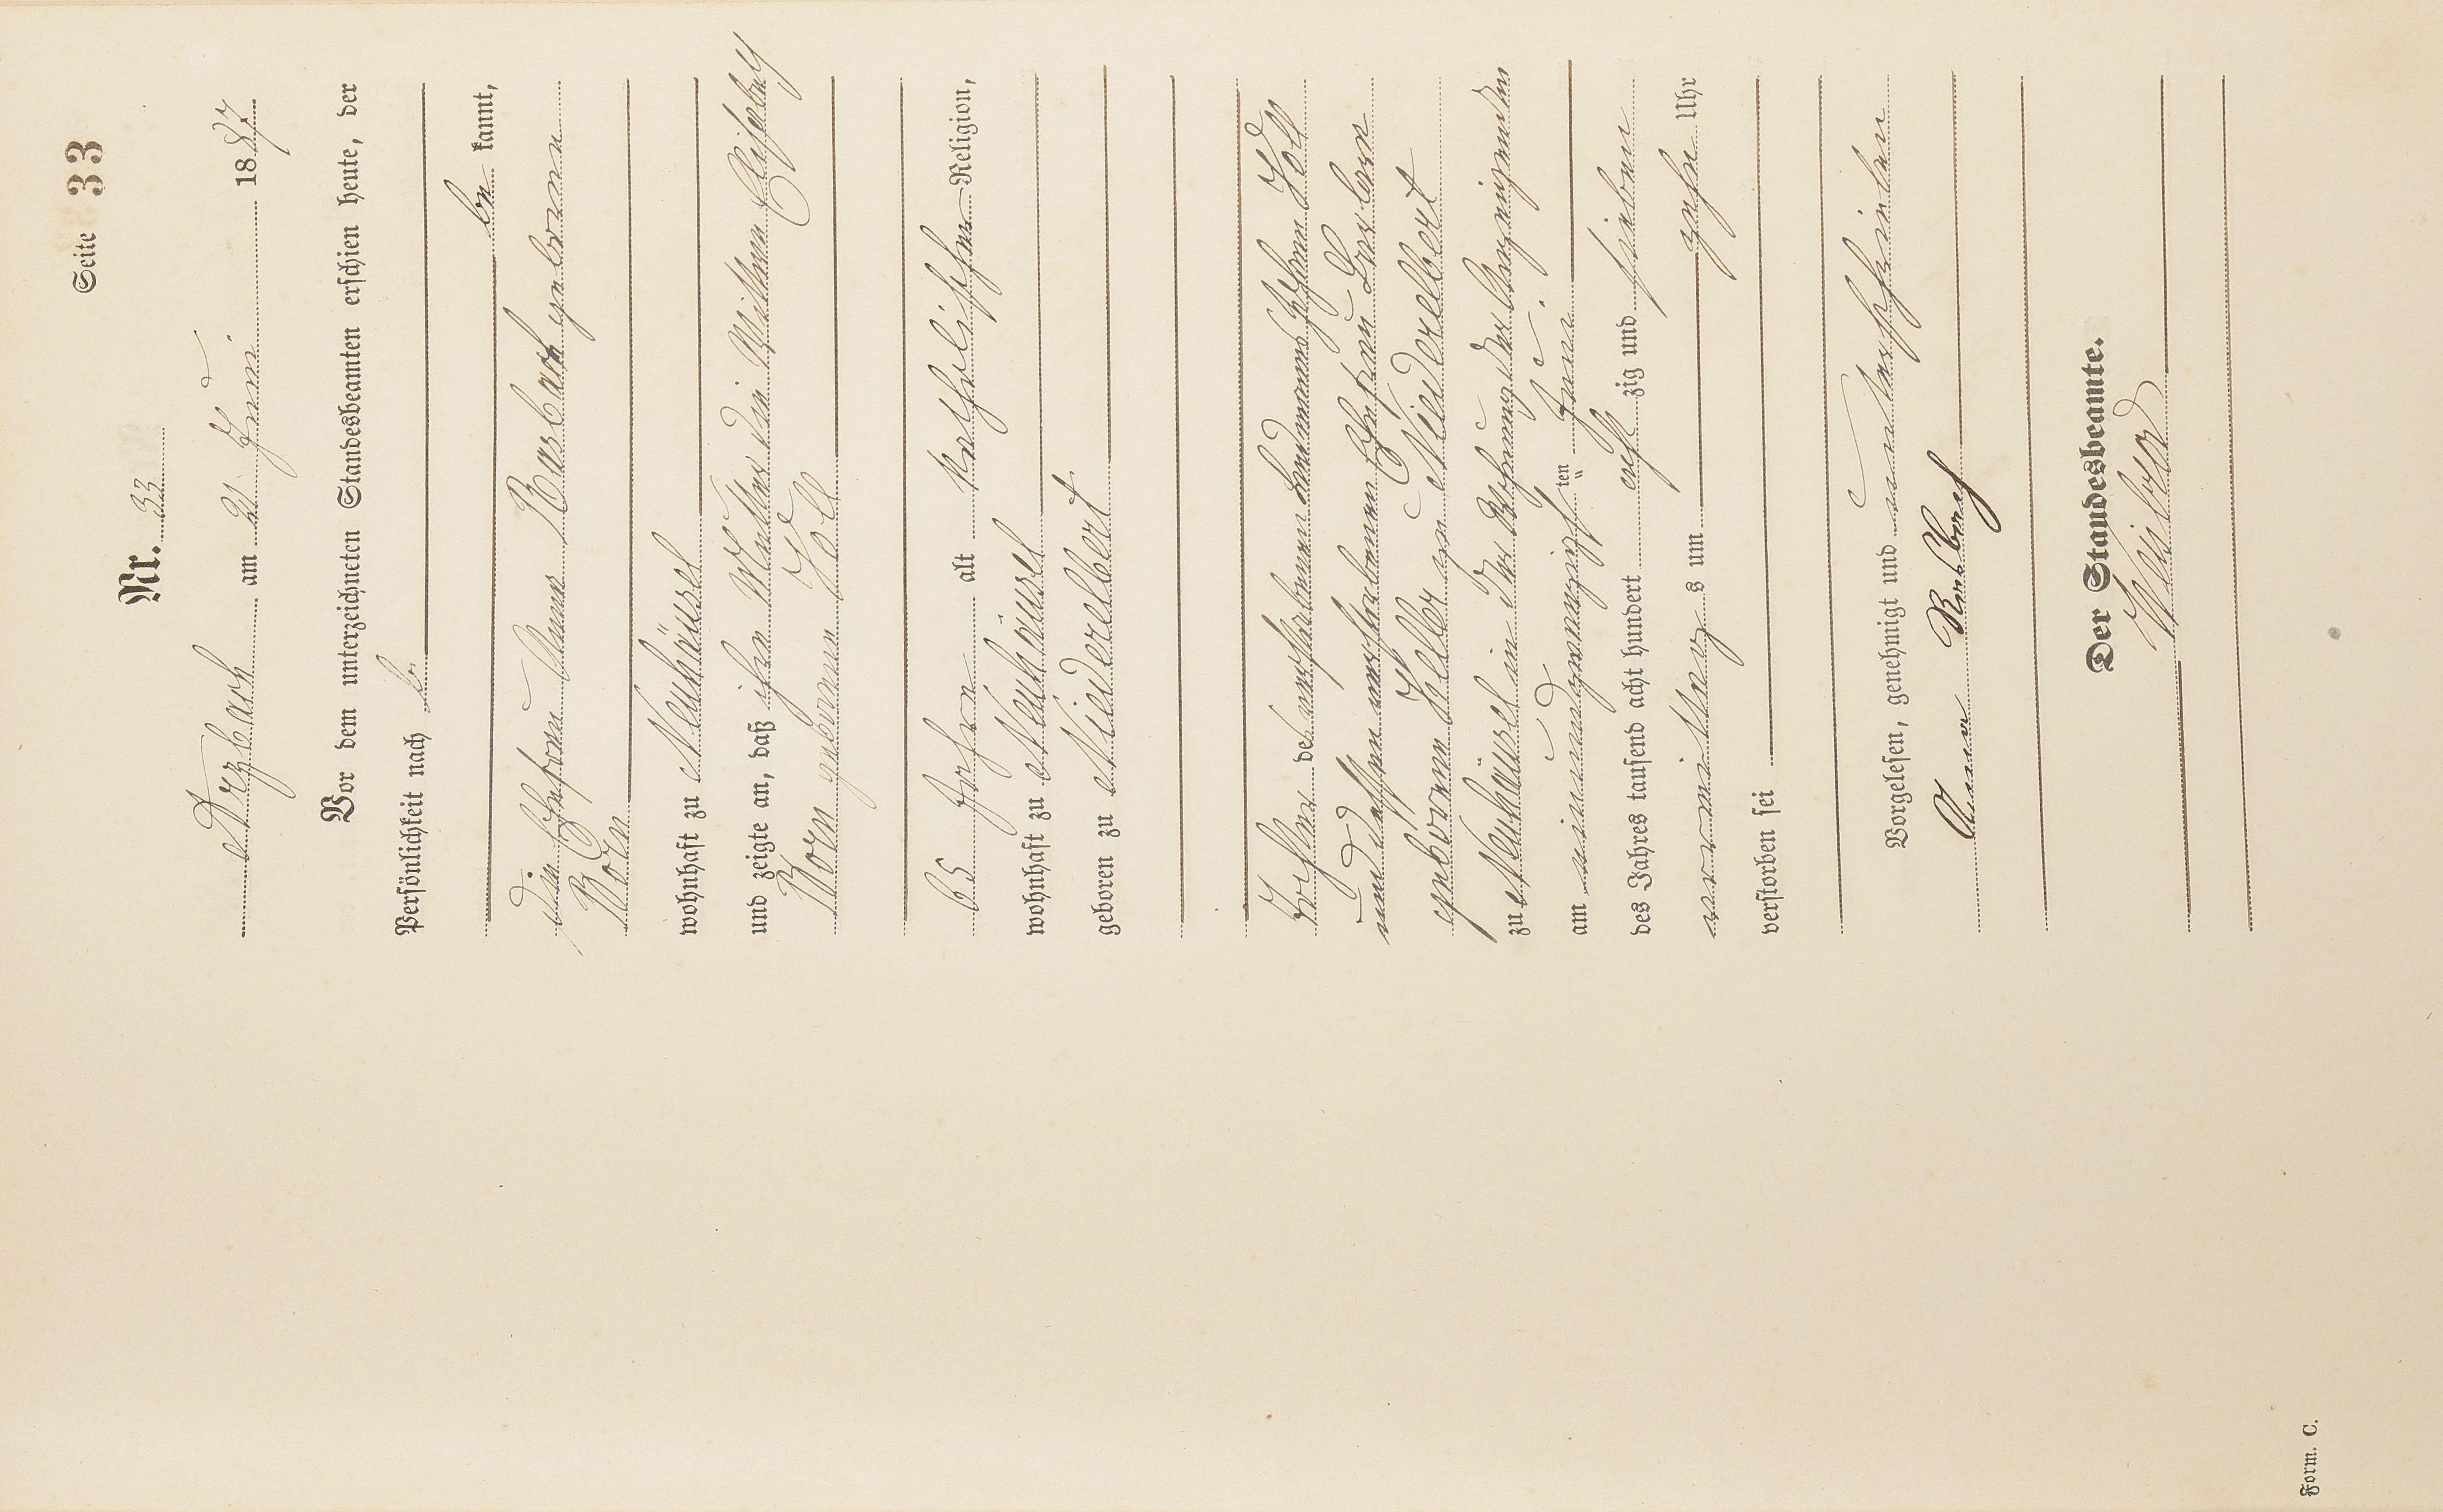 Seite 33
Nr. 33
Arzbach am 21. Juni 1887
Vor dem unterzeichneten Standesbeamten erschien heute, der
Persönlichkeit nach
be kannt,
die Ehefrau Anna Barbach geborene
Born
wohnhaft zu Neuhäusel
und zeigte an, daß ihre Mutter die Wittwe Elisabeth
Born geborene Höll
65 Jahre alt katholischer Religion,
wohnhaft zu Neuhäusel
geboren zu Niederelbert
Tochter des verstorbenen Johann Höll
und dessen verstorbenen Ehefrau Barbara
geborene zu Niederelbert
zu Neuhäusel in der Wohnung der Anzeigenden
am einundzwanzigsten ten Juni
des Jahres tausend acht hundert acht zig und sieben
vormittags um zehn Uhr
verstorben sei
Vorgelesen, genehmigt und unterschrieben
Anna Barbach
Der Standesbeamte.
Form. C.